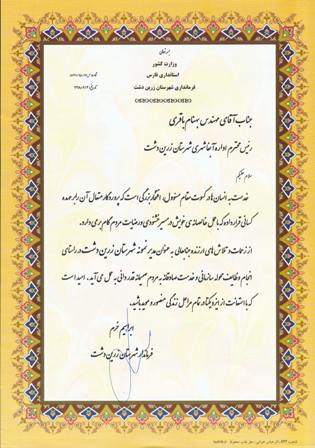 وزارت کشور
استانداری فارس
فرمانداری شهرستان زرین دشت
جناب آقای مهندس بهنام باقری
رئیس محترم اداره آبفا شهری شهرستان زرین دشت
سلام علیکم
خدمت به انسان ها در کسوت مقام مسؤول، افتخار بزرگی است که پروردگار متعال آن را بر عهده
کسانی قرار داده که با عمل خالصانه ی خویش در مسیر خشنودی و رضایت مردم گام بر می دارد.
از زحمات و تلاش های ارزنده جنابعالی به عنوان مدیر نمونه شهرستان زرین دشت در راستای
انجام وظایف محوله سازمانی و خدمت صادقانه به مردم صمیمانه قدردانی به عمل می آید. امید است
که با استعانت از ایزد یکتا در تمام مراحل زندگی منصور و موید باشید.
ابراهیم خرم
فرماندار شهرستان زرین دشت